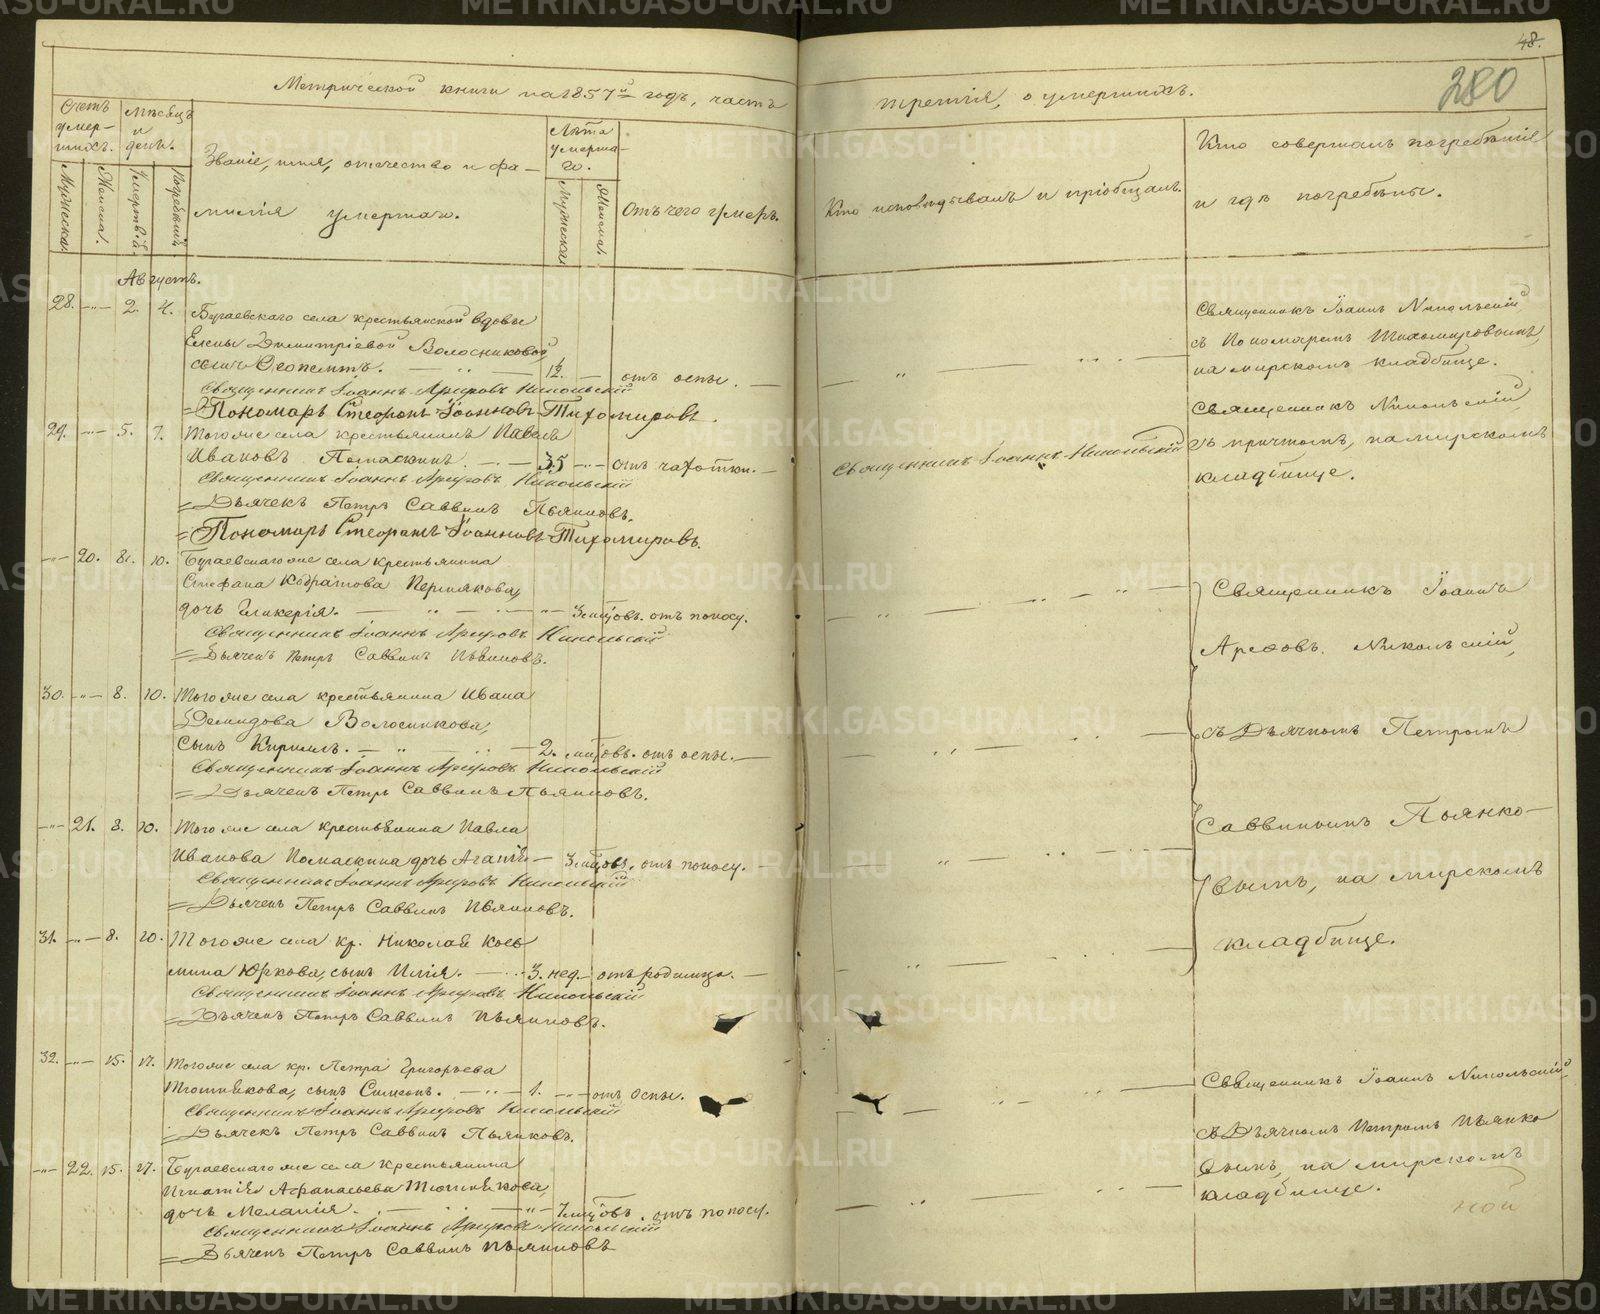 48.
280
Метрической книги на 1857й годъ, часть третія, о умершихъ.
Счетъ умер-шихъ.
Мѣсяцъ и день.
Званіе, имя, отчество и фа-
милія умершаго.
Лѣта умерша-го.
Отъ чего умеръ.
Кто исповѣдывалъ и пріобщалъ.
Кто совершалъ погребеніе
и гдѣ погребены.
Мужеска.
Женска.
Умертвій.
Погребеній.
Мужеска
Женска.
Августъ.
28. — 2. 4. Бугаевскаго села крестьянской вдовы
Елены Димитріевой Волосниковой
сынъ Ѳеопемптъ. — 1½. — отъ оспы. —
Священникъ Іоаннъ Арефовъ Никольскій
Пономарь Стефанъ Іоанновъ Тихомировъ.
Священникъ Іоаннъ Никольскій
съ Пономаремъ Тихомировымъ,
на мирскомъ кладбище.
29. — 5. 7. Тогоже села крестьянинъ Павелъ
Ивановъ Помаскинъ. — 35 — отъ чахотки. —
Священникъ Іоаннъ Арефовъ Никольскій
Дьячекъ Петръ Саввинъ Пьянковъ.
Пономарь Стефанъ Іоанновъ Тихомировъ.
Священникъ Іоаннъ Никольскій
Священникъ Никольскій
съ причтомъ, на мирскомъ
кладбище.
— 20. 8. 10. Бугаевскагоже села крестьянина
Стефана Кодратова Пермякова,
дочь Гликерія. — 3 мцовъ. отъ поносу.
Священникъ Іоаннъ Арефовъ Никольскій
Дьячекъ Петръ Саввинъ Пьянковъ.
30. — 8. 10. Тогоже села крестьянина Ивана
Демидова Волосникова,
сынъ Кириллъ. — 2. мцовъ. отъ оспы. —
Священникъ Іоаннъ Арефовъ Никольскій
Дьячекъ Петръ Саввинъ Пьянковъ.
— 21. 8. 10. Тогоже села крестьянина Павла
Иванова Помаскина дочь Агапія — 3 мцовъ. отъ поносу. —
Священникъ Іоаннъ Арефовъ Никольскій
Дьячекъ Петръ Саввинъ Пьянковъ.
31. — 8. 10. Тогоже села кр. Николая Козь
мина Юркова, сынъ Илія. — 3. нед. — отъ родимца. —
Священникъ Іоаннъ Арефовъ Никольскій
Дьячекъ Петръ Саввинъ Пьянковъ.
Священникъ Іоаннъ
Арефовъ. Никольскій,
съ Дьячкомъ Петромъ
Саввинымъ Пьянко-
вымъ, на мирскомъ
кладбище.
32. — 15. 17. Тогоже села кр. Петра Григорьева
Тютнякова, сынъ Симеонъ. — 1. — отъ оспы.
Священникъ Іоаннъ Арефовъ Никольскій
Дьячекъ Петръ Саввинъ Пьянковъ.
— 22. 15. 17. Бугаевскагоже села крестьянина
Игнатія Афанасьева
дочь Меланія. — 7 мцовъ. отъ поносу.
Священникъ Іоаннъ Арефовъ Никольскій
Дьячекъ Петръ Саввинъ Пьянковъ
Священникъ Іоаннъ Никольскій
съ Дьячкомъ Петромъ Пьянко
вымъ, на мирскомъ
кладбище.
METRIKI.GASO-URAL.RU